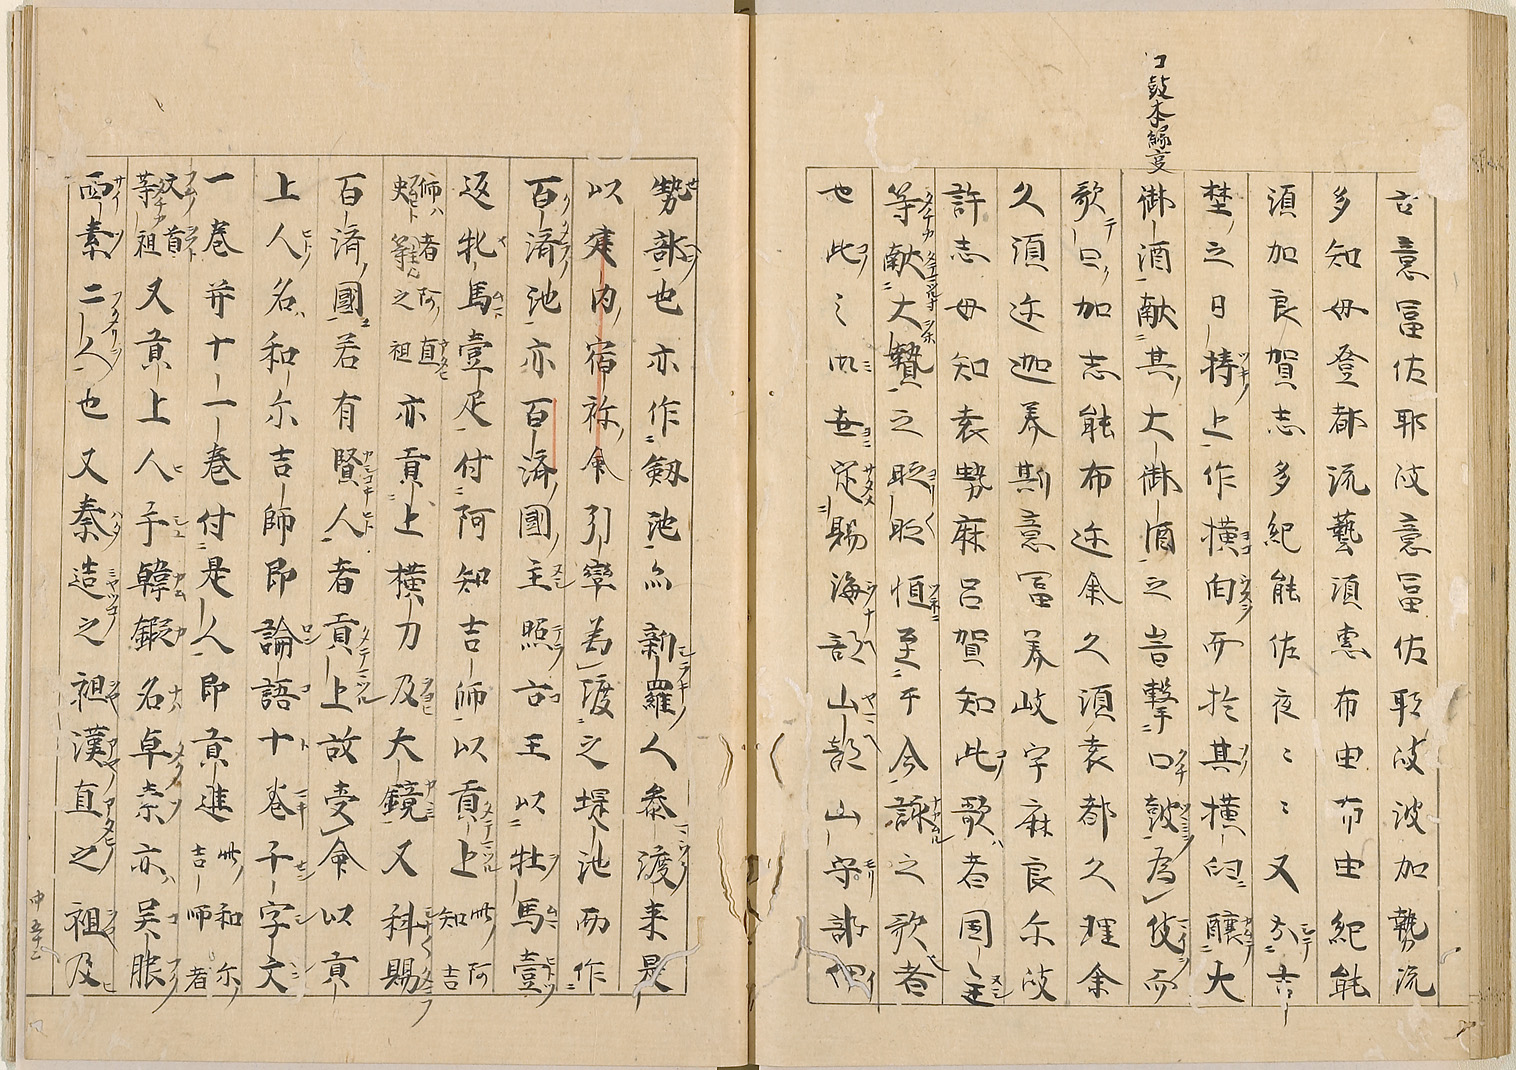 口鼓本縁事
古意冨佐耶岐意冨佐耶岐波加勢流
多知母登都流藝須恵布由布由紀能
須加良賀志多紀能佐夜〻〻又於吉
埜之日持上作横向而於其横臼醸大
御酒献其大御酒之時撃口鼓為伎而
歌曰加志能布迩余久須袁都久理余
久須迩迦美斯意冨美岐宇麻良尓岐
許志母知袁勢麻呂賀知此歌者国主
等献大贄之時時恒至于今詠之歌者
也此之御世定賜海部山部山守部伊
勢部也亦作釼池亦新羅人参渡来是
以建内宿祢命引率為渡之堤池而作
百済池亦百済國主照古王以牡馬壹
返牝馬壹疋付阿知吉師以貢上此阿知吉
師者阿直史等之祖亦貢上横刀及大鏡又科賜
百済國若有賢人者貢上故受命以貢
上人名和尓吉師即論語十巻千字文
一巻并十一巻付是人即貢進此和尓吉師者
文首等祖又貢上人手韓鍛名卓素亦呉服
西素二人也又秦造之祖漢直之祖及
中五十二